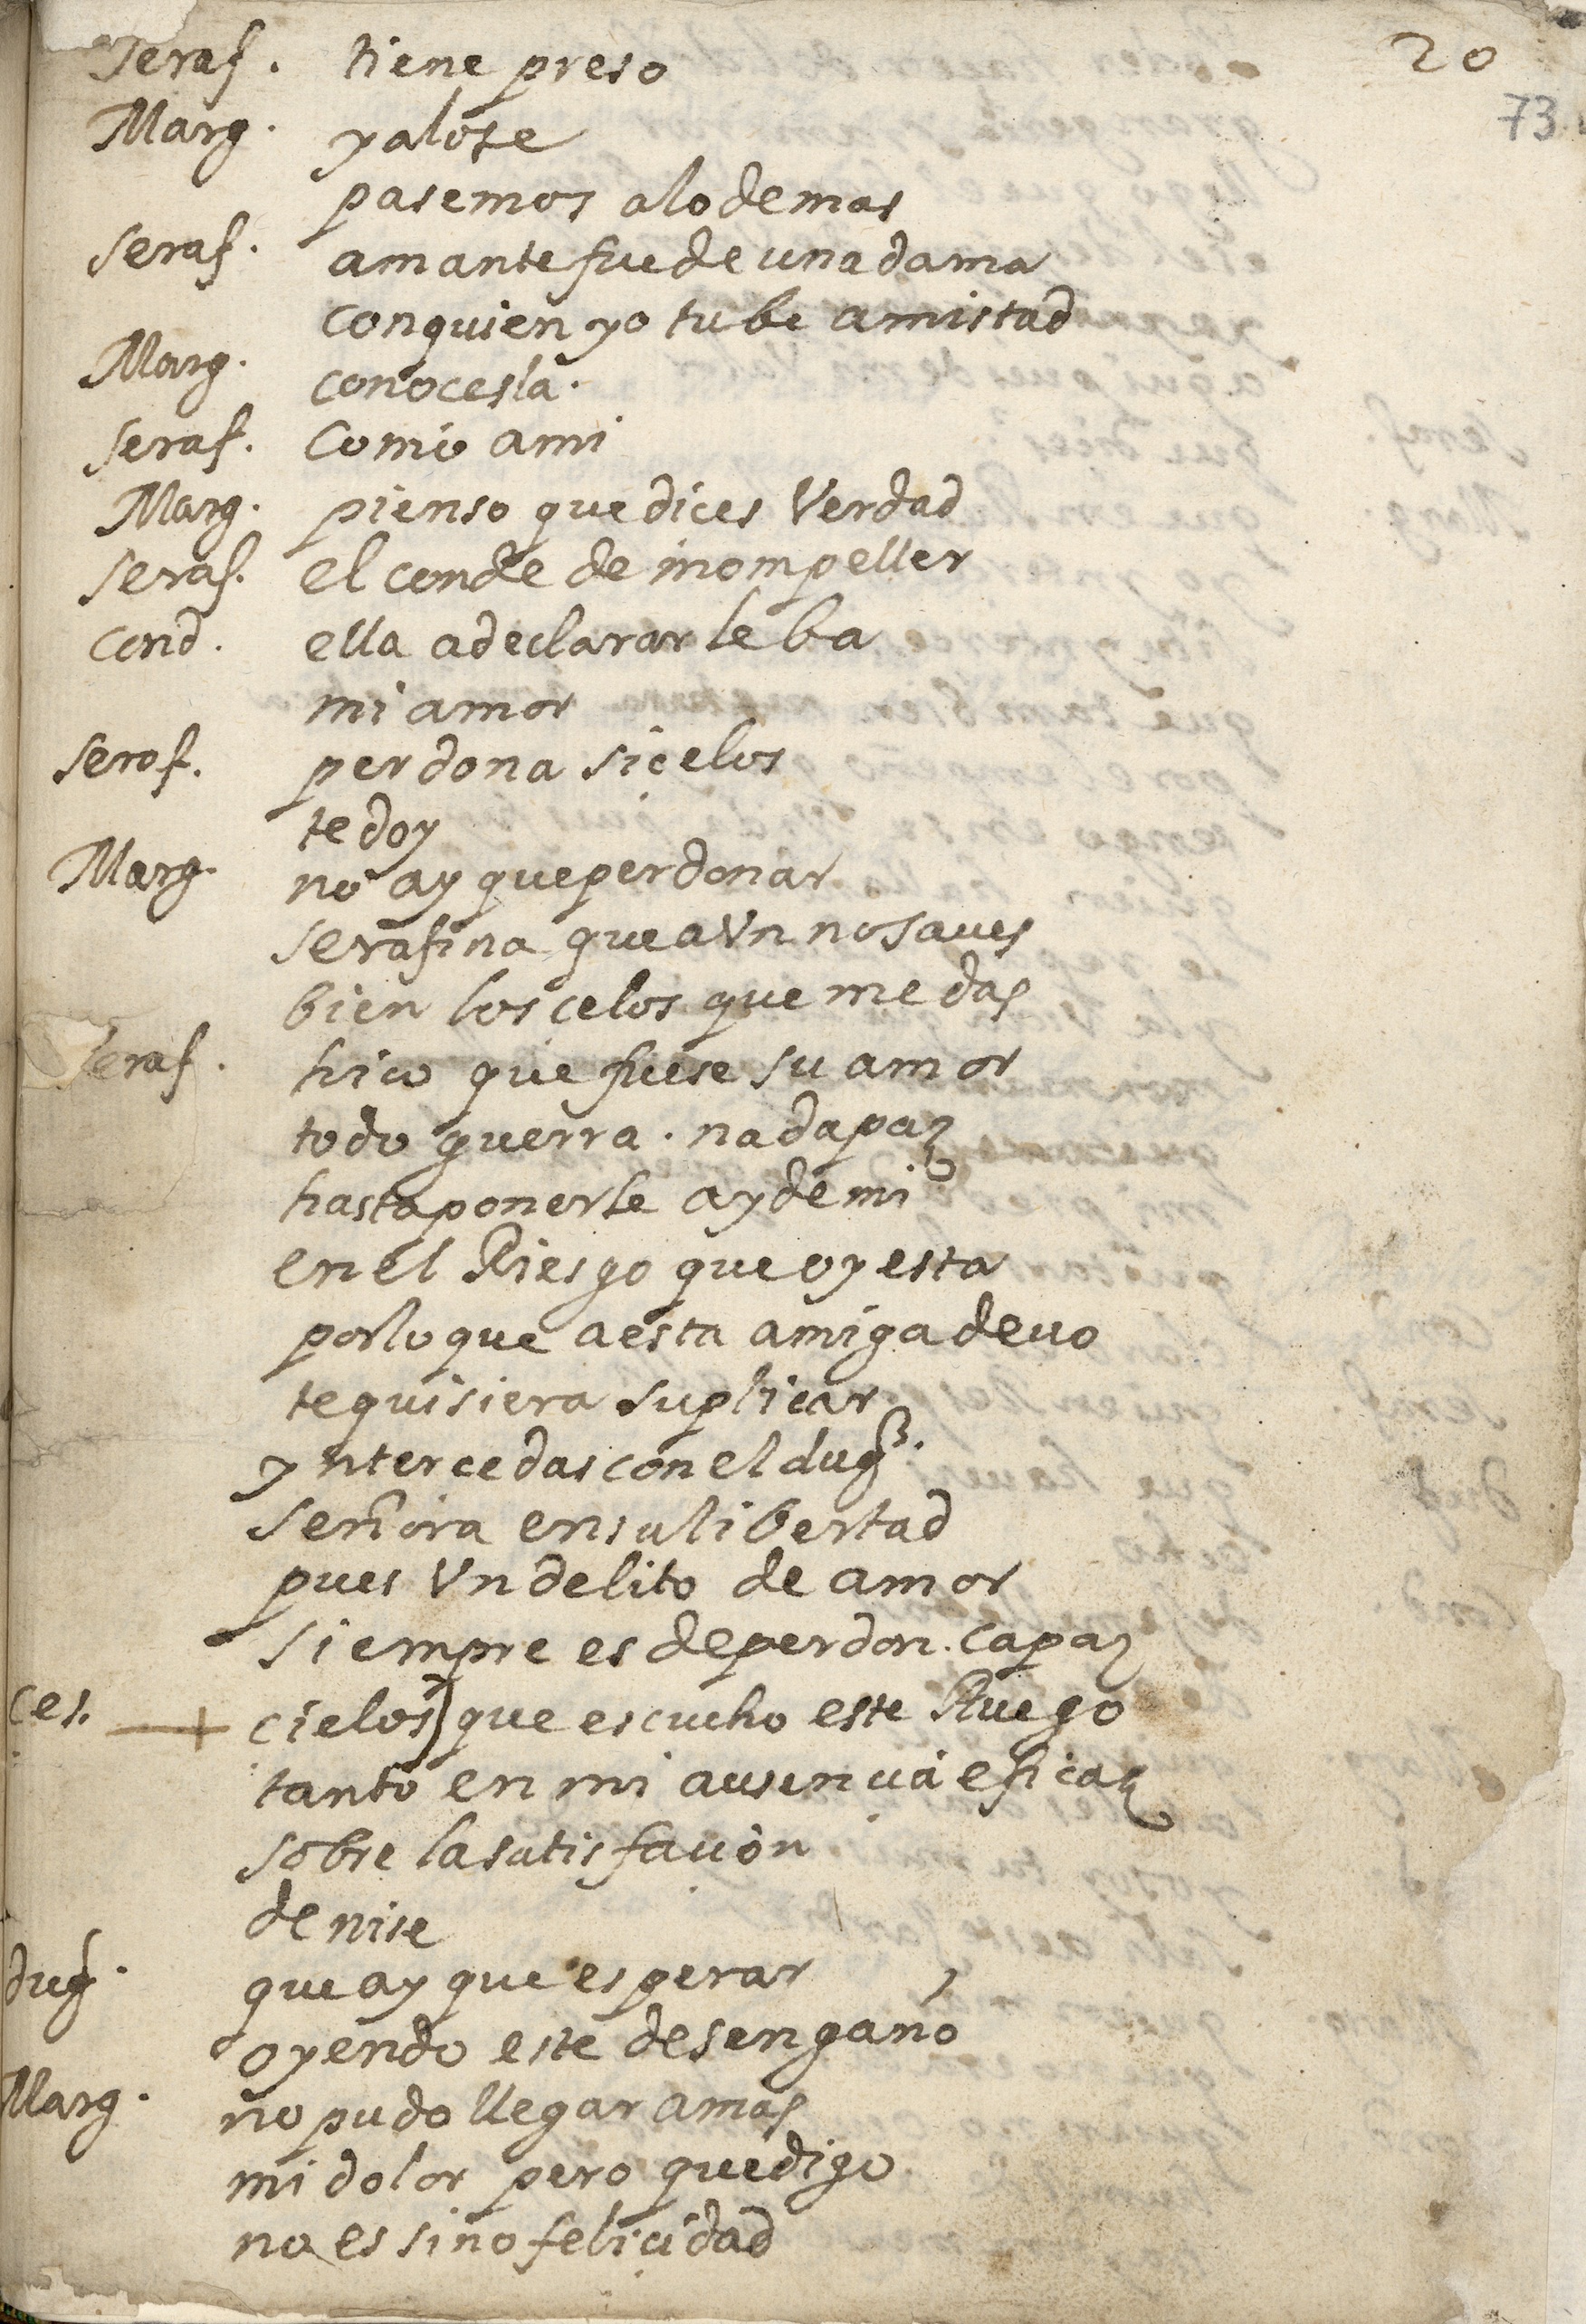 20
73
Seraf. tiene preso
Marg. ya lo se
pasemos alo demas
Seraf. amante fue de una dama
con quien yo tube amistad
Marg. conocesla.
Seraf. Como ami
Marg. pienso que dices Verdad
Seraf. el conde de mompeller
Cond. ella a declarar le ba
mi amor
Seraf. perdona si celos
te doy
Marg. no ay que perdonar
serafina que aVn no saues
bien los celos que me das
Seraf. hico que fuese su amor
todo guerra. nada paz
hasta ponerle ay de mi
en el Riesgo que oy esta
por lo que a esta amiga deuo
te quisiera suplicar
yntercedas con el duq.
Señora en su libertad
pues Vn delito de amor
siempre es de perdon. capaz
Ces. cielos) que escucho este Ruego
tanto en mi ausencia eficaz
sobre la satisfacion
de nise
duq. que ay que esperar
oyendo este desengaño
Marg. no pudo llegar a mas
mi dolor pero que digo
no es sino felicidad